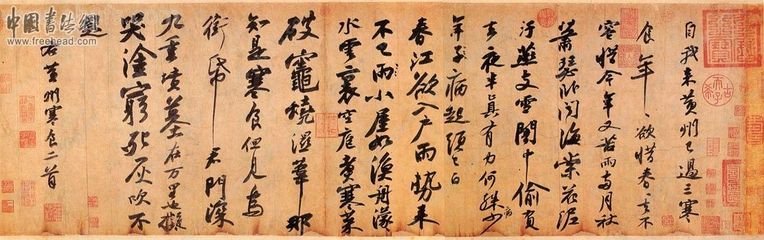 中國書法網
www.freehead.com
自我來黃州已過三寒
食年〃欲惜春〃去不
容惜今年又苦雨兩月秋
蕭瑟卧聞海棠花泥
汙燕支雪闇中偷負
去夜半真有力何殊少病
年子病起須已白
春江欲入戶雨勢來
不已雨小屋如漁舟濛〃
水雲裏空庖煮寒菜
破竈燒濕葦那
知是寒食但見烏
銜帋君門深
九重墳墓在万里也擬
哭塗窮死灰吹不
起
右黃州寒食二首